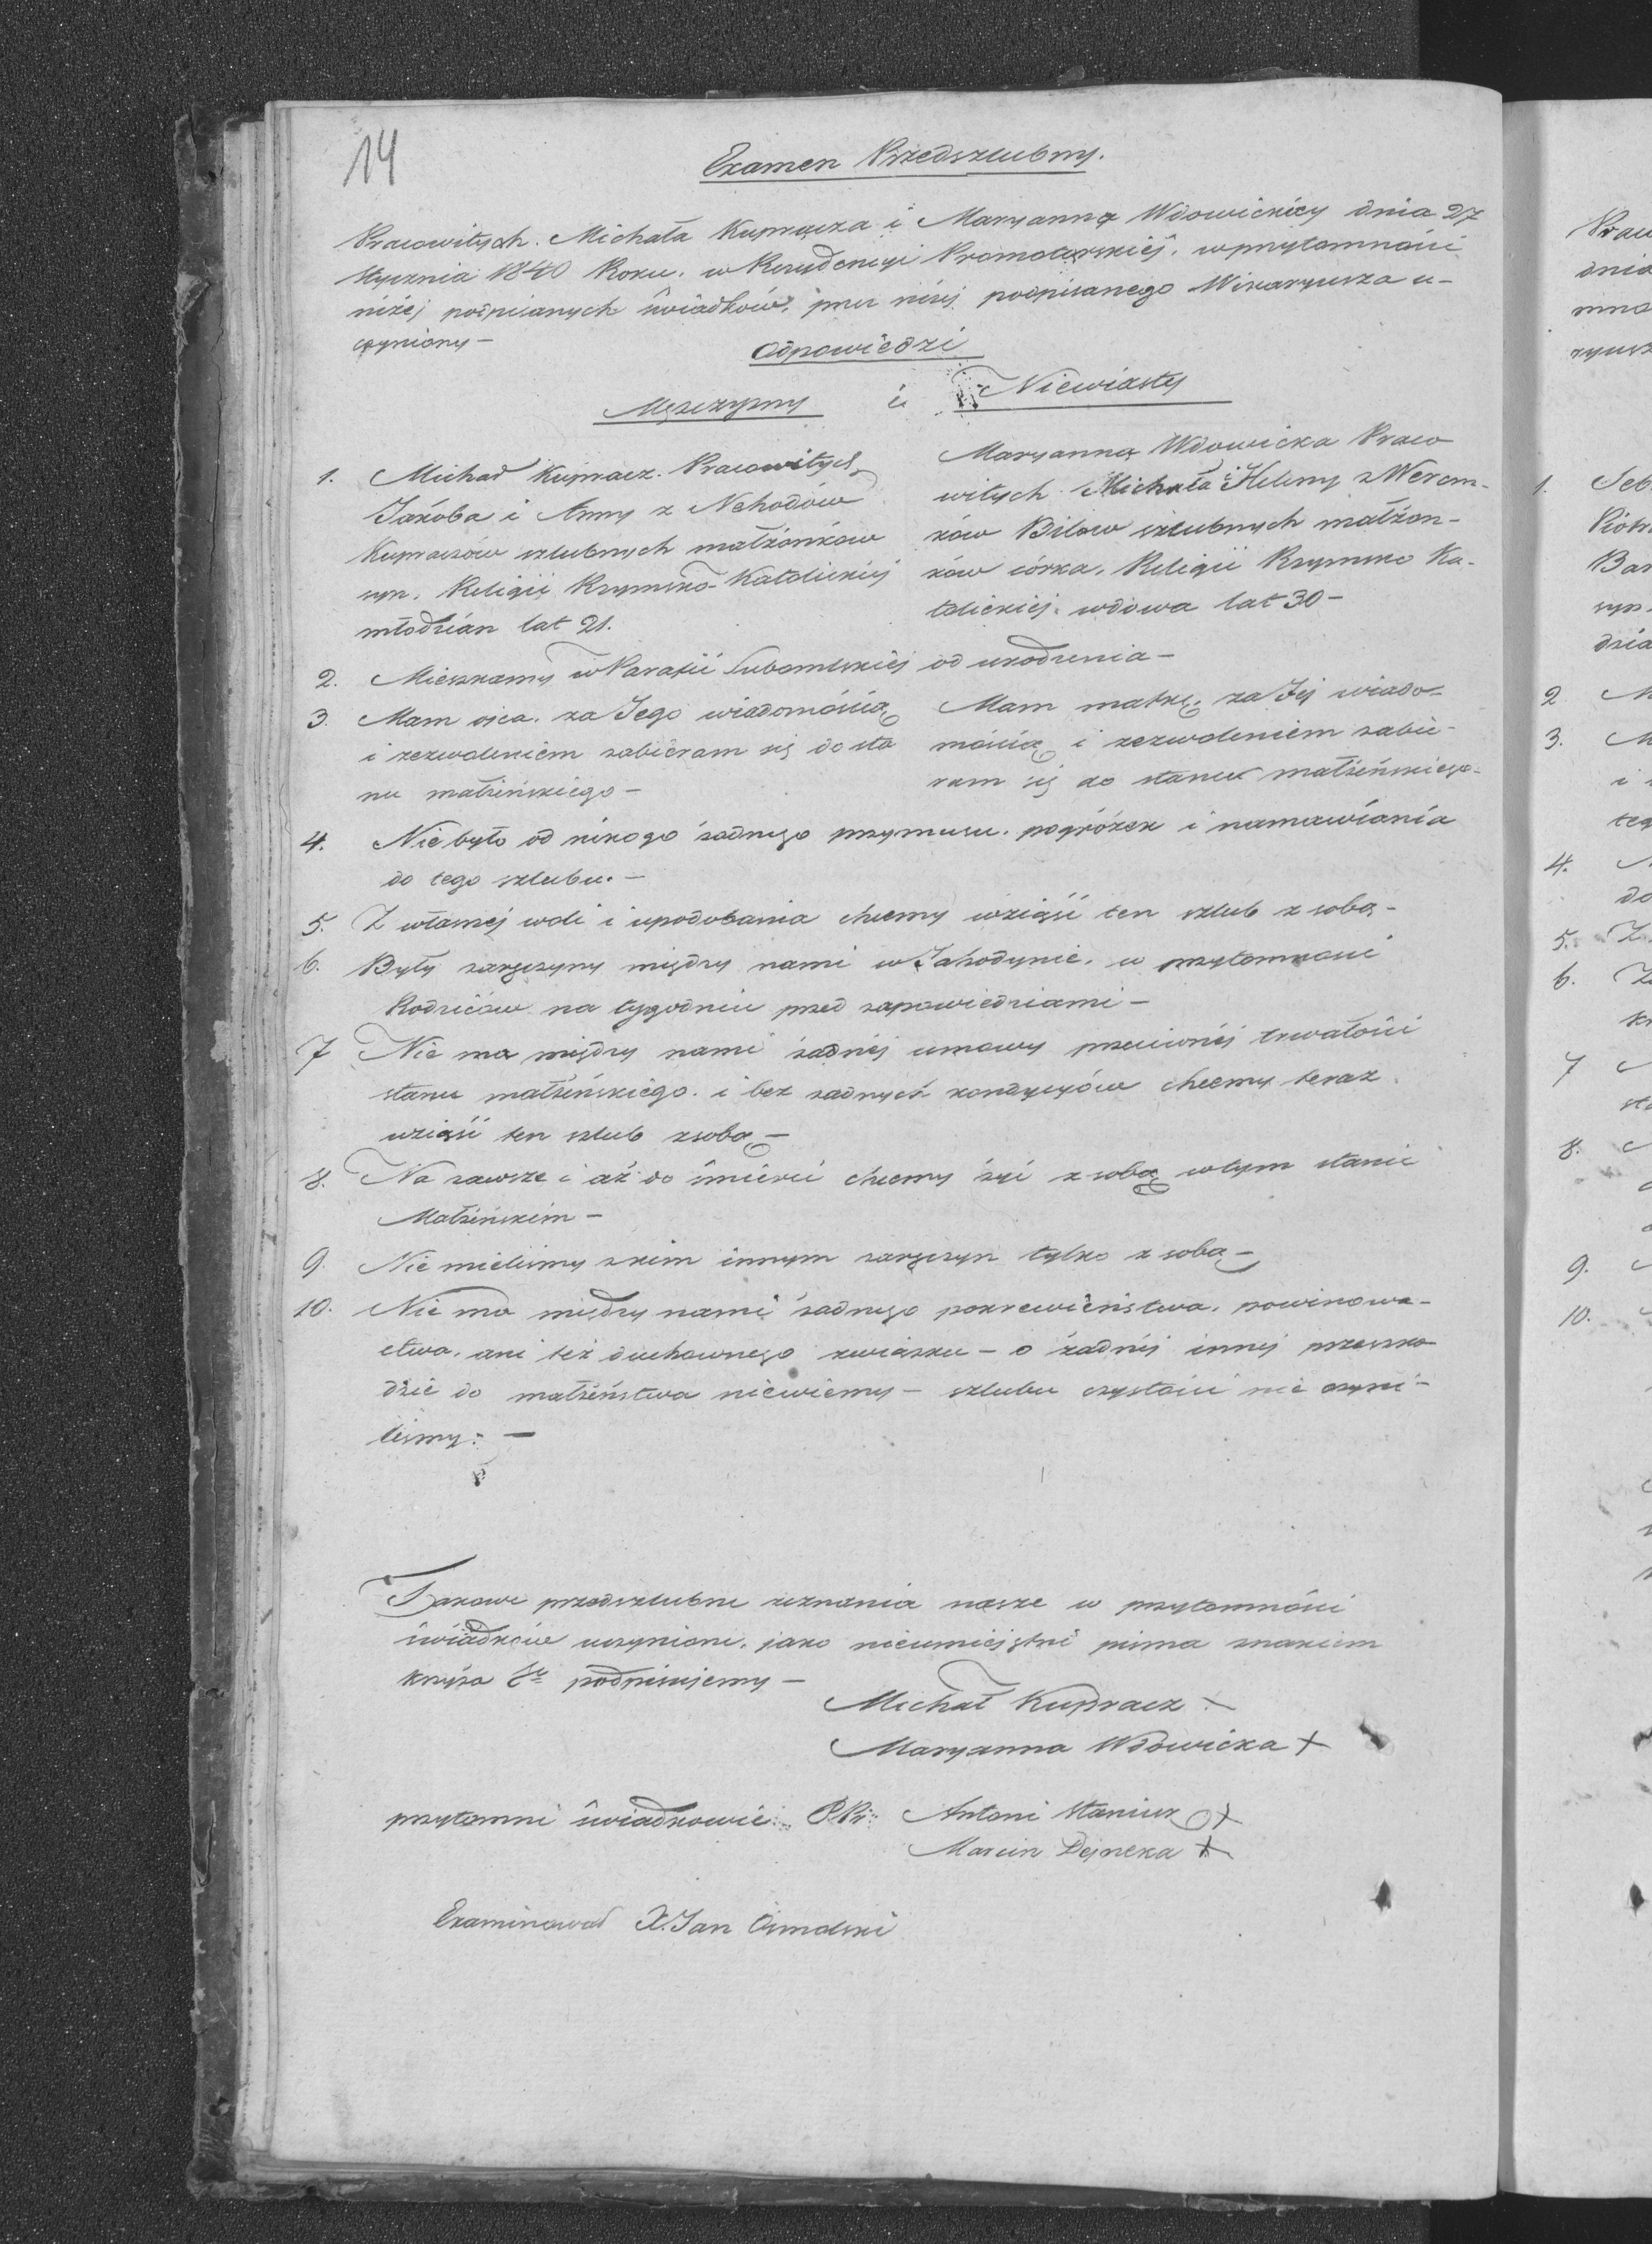 14
Examen Przedszlubny.
Pracowitych. Michała Kupracza i Maryanny Wdowickiey dnia 27
Stycznia 1840 Roku. w Rezydencyi Promotorskiéj. w przytomności
niżéj podpisanych świadków, przez niżéj podpisanego Wikaryusza u-
czyniony —
Odpowiedzi
Męszczyzny i Niewiasty
1. Michał Kupracz. Pracowitych
Jakóba i Anny z Nehodów
Kupraczów szlubnych małżonków
syn. Religii Rzymsko-Katolickiéj
młodzian lat 21.
Maryanna Wdowicka Praco
witych Michała i Heleny z Werem-
ków Bilow szlubnych małżon-
ków córka. Religii Rzymsko Ka-
tolickiéj. wdowa lat 30 —
2. Mieszkamy w Parafii Lubomlskiéj od urodzenia —
3. Mam ojca. za Jego wiadomością
i zezwoleniem zabieram się do sta
nu małżeńskiego —
Mam matkę. za Jéj wiado-
mością i zezwoleniem zabie-
ram się do stanu małżeńskiego —
4. Nie było od nikogo żadnego przymusu. pogróżek i namawiania
do tego szlubu. —
5. Z własnéj woli i upodobania chcemy wziąść ten szlub z sobą —
6. Były zaręczyny między nami w Zahodynie. w przytomności
Rodziców na tygodniu przed zapowiedziami —
7 Nie ma między nami żadnéj umowy przeciwnéj trwałości
stanu małżeńskiego. i bez żadnych kondycyów chcemy teraz
wziąść ten szlub z sobą —
8. Na zawsze i aż do śmierci chcemy żyć z sobą w tym stanie
Małżeńskim —
9. Nie mielismy z kim innym zaręczyn tylko z sobą —
10. Nie ma między nami żadnego pokrewieństwa. powinowa-
ctwa. ani też duchownego związku — o żadnéj innéj przeszko
dzie do małżeństwa niewiemy — szlubu czystości nie czyni-
lismy: —
Takowe przedszlubne zeznania nasze w przytomności
świadków uczynione. jako nieumiejętni pisma znakiem
krzyża S. podpisujemy —
Michał Kupracz
Maryanna Wdowicka +
przytomni świadkowie: Antoni Staniuk +
Marcin Dejneka +
Examinował X. Jan Osmolski
1.
2
3.
4.
5.
6.
7
8.
9.
10.